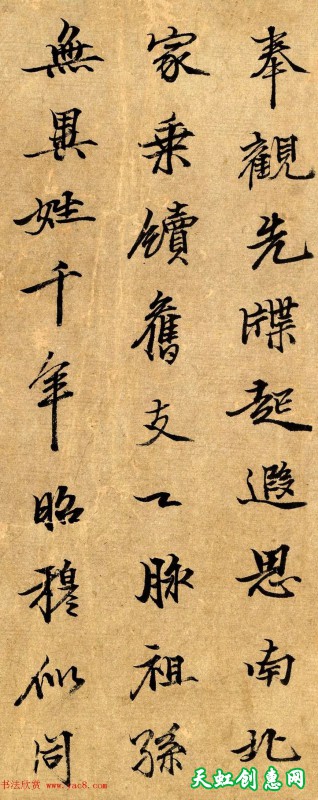 奉觀先牒起遐思南北
家乘續舊支〻脉祖孫
無異姓千年昭穆似同
书法欣赏 www.yac8.com
天虹创惠网